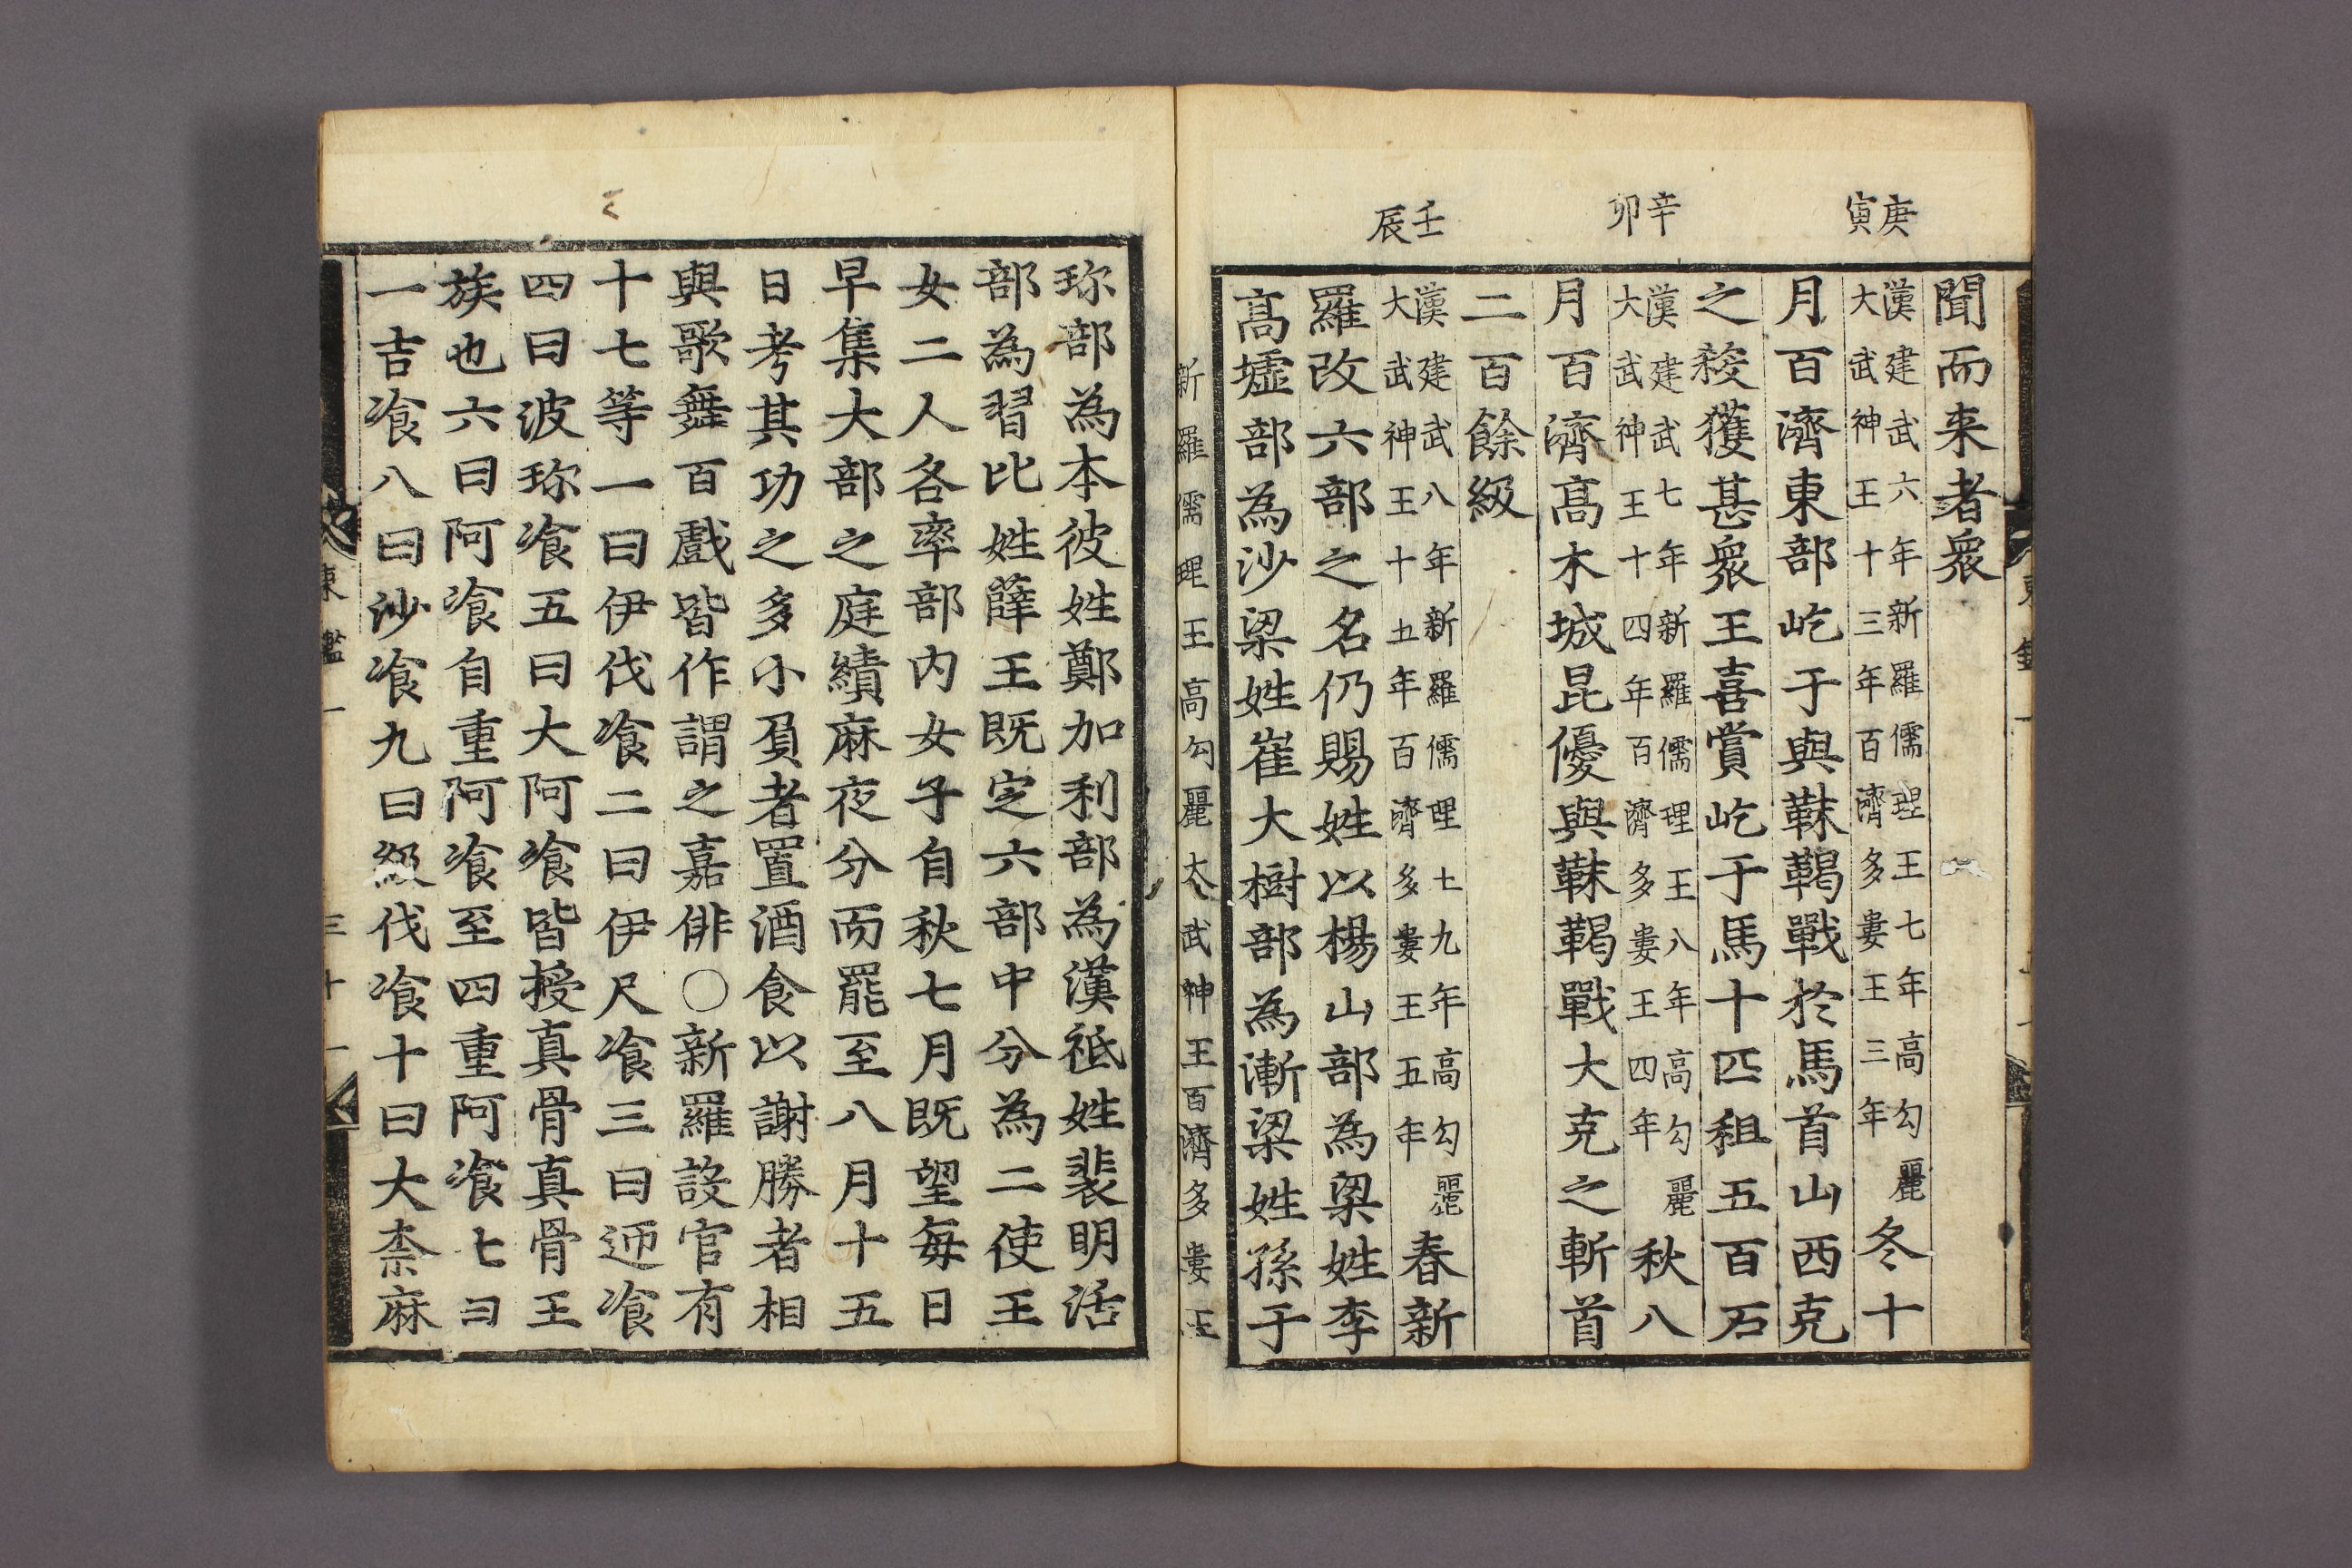 庚寅
辛卯
壬辰
聞而来者衆
漢建武六年新羅儒理王七年高勾麗
大武神王十三年百濟多婁王三年
冬十
月百濟東部屹于與靺鞨戰於馬首山西克
之殺獲甚衆王喜賞屹于馬十匹租五百石
漢建武七年新羅儒理王八年高勾麗
大武神王十四年百濟多婁王四年
秋八
月百濟高木城昆優與靺鞨戰大克之斬首
二百餘級
漢建武八年新羅儒理王九年高勾麗
大武神王十五年百濟多婁王五年
春新
羅改六部之名仍賜姓以楊山部為梁姓李
髙墟部為沙梁姓崔大樹部為漸梁姓孫于
新羅儒理王高勾麗大武神王百濟多婁王
珎部為本彼姓鄭加利部為漢祗姓裴明活
部為習比姓薛王既定六部中分為二使王
女二人各率部内女子自秋七月既望每日
早集大部之庭績麻夜分而罷至八月十五
日考其功之多小負者置酒食以謝勝者相
與歌舞百戲皆作謂之嘉俳〇新羅設官有
十七等一曰伊伐飡二曰伊尺飡三曰迊飡
四曰波珎飡五曰大阿飡皆授真骨真骨王
族也六曰阿飡自重阿飡至四重阿飡七曰
一吉飡八曰沙飡九曰級伐飡十曰大柰麻
東鑑一
三十一